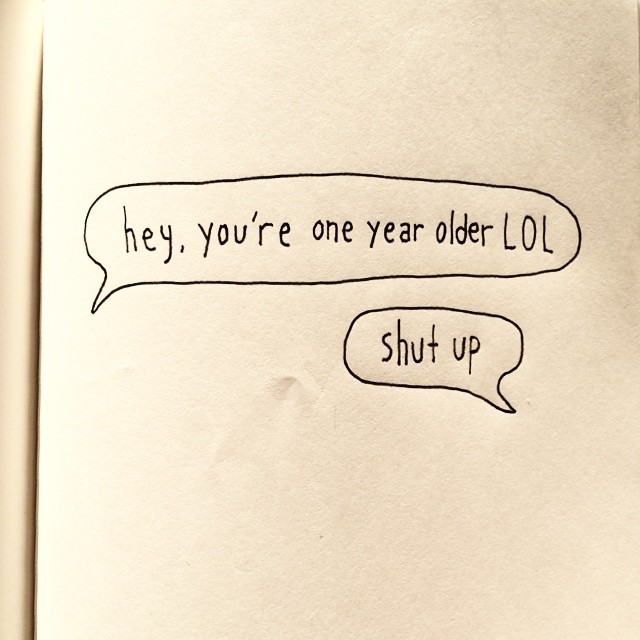 hey, you're one year older LOL
shut up